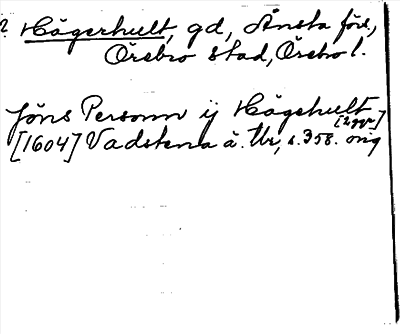 ? Hägerhult, gd, Ånsta förs,
Örebro stad, Örebro l.
Jöns Personn ij Hägehult
[2 ggr]
[1604] Vadstena ä. Ur, s. 358. orig